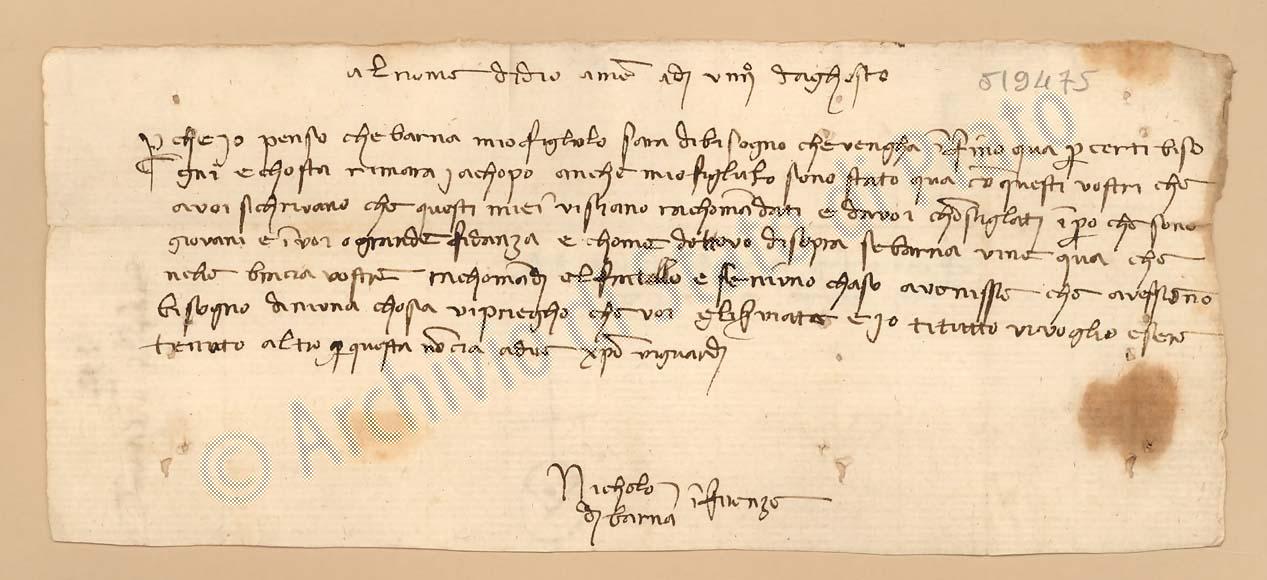 al nome didio amē adj viiij daghosto
519475
Pche io penso che barna mio figliolo sara dibisogno che vengha īfino qua p certi biso
gni e chosta rimara jachopo anche mio figliuolo sono stato qua cō questi vostri che
avoi schrivano che questi miei vi siano rachomādati e davoi chōsigliati īpo che sono
giovani e ī voi o grande fidanza e chome detto vo di sopra se barna viene qua che
nele bracia vostre rachomādj el fratello e se niuno chaso avenisse che avessono
bisogno di niuna chosa vi priegho che voi gli e io di tutto vi voglio esere
tenuto altro p questa nō cia a dire xpō vi guardj
Nicholo
dj barna ī firenze
© Archivio di Stato di Prato